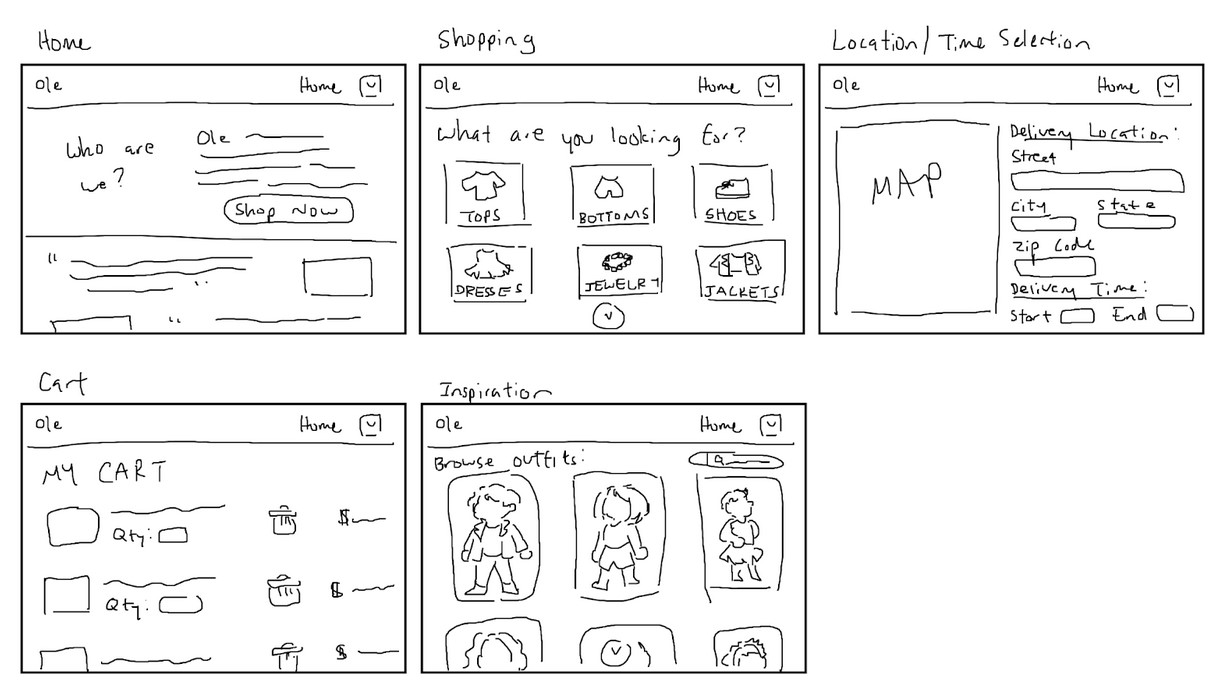 Home
Ole Home
Who are we?
Ole
Shop Now
"
"
"
Shopping
Ole Home
What are you looking for?
TOPS BOTTOMS SHOES
DRESSES JEWELRY JACKETS
Location/Time Selection
Ole Home
MAP
Delivery Location:
Street
City State
Zip Code
Delivery Time:
Start End
Cart
Ole Home
MY CART
Qty: $
Qty: $
$
Inspiration
Ole Home
Browse outfits: